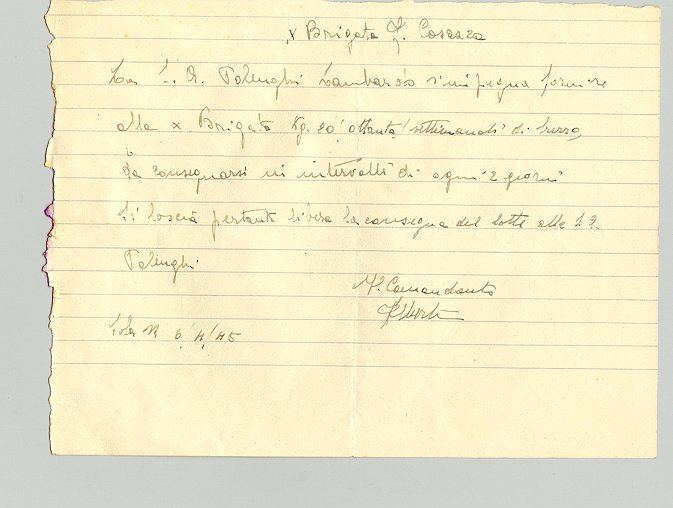 X Brigata F. Casazza
La S. A. Polenghi Lombardo s'impegna fornire
alla X. Brigata Kg. 80 (ottanta) settimanali di burro,
da consegnarsi in intervalli di ogni 2 giorni
Si lascia pertanto libera la consegna del latte alla
Polenghi.
Il Comandante
6/4/45